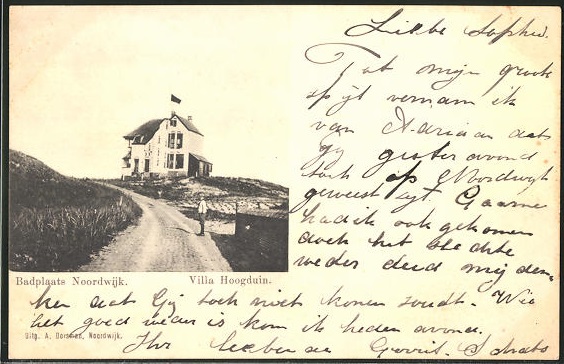 Liefste Sophie.
Tot mijn groote
spijt vernam ik
van Adriaan dat
gij gister avond
toch op Noordwijk
geweest zijt. Gaarne
had ik ook gekomen
doch het slechte
weder deed mij den-
ken dat Gij toch niet komen zoudt. Als
het goed weder is kom ik heden avond.
Uw liefhebbende Gerrit
Badplaats Noordwijk. Villa Hoogduin.
Uitg. A. Dorsman, Noordwijk.